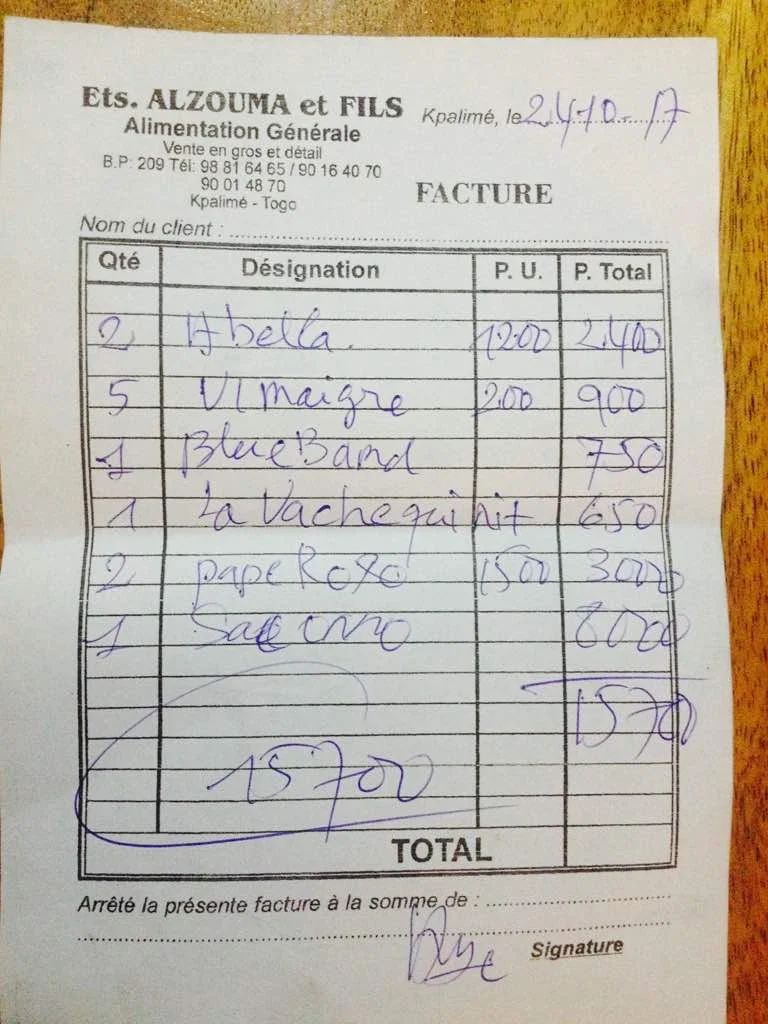 Ets. ALZOUMA et FILS
Alimentation Générale
Vente en gros et détail
B.P: 209 Tél: 98 81 64 65 / 90 16 40 70
90 01 48 70
Kpalimé - Togo
Kpalimé, le 24-10-17
FACTURE
Nom du client :
Qté Désignation P. U. P. Total
2 Abella 1200 2400
5 Vimaigre 200 900
1 Blue Band 750
1 La Vache qui rit 650
2 pape Roxo 1500 3000
1 Sac 8000
15700
15700
TOTAL
Arrêté la présente facture à la somme de :
Signature